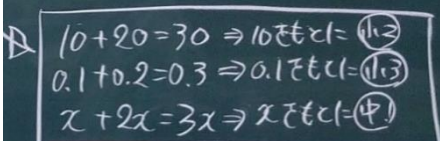 10+20=30 ⇒ 10をもとに=小2
0.1+0.2=0.3 ⇒ 0.1をもとに=小3
x+2x=3x ⇒ xをもとに=中1